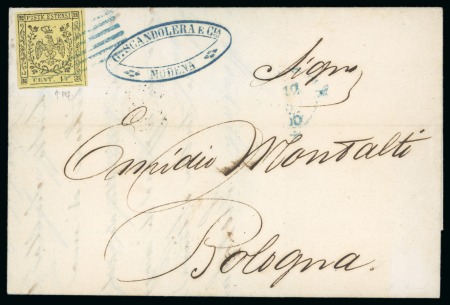 POSTE ESTENSI
CENT. 15
G. SCANDOLERA E Cia
MODENA
Sigre
Emidio Montalti
Bologna.